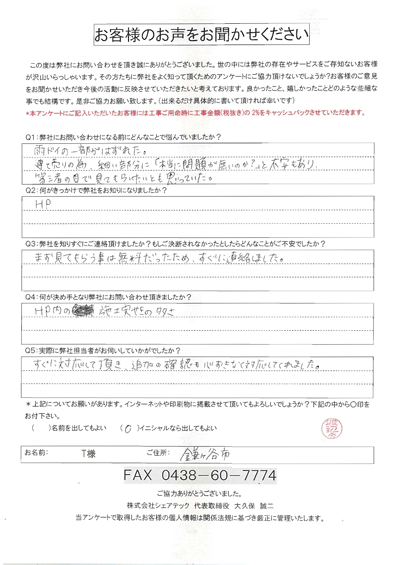 お客様のお声をお聞かせください
この度は弊社にお問い合わせを頂き誠にありがとうございました。世の中には弊社の存在やサービスをご存知ないお客様
が沢山いらっしゃいます。その方たちに弊社をよく知って頂くためのアンケートにご協力頂けないでしょうか?お客様のご意見
をお聞かせいただき今後の活動に反映させていただきたいと考えております。良かったこと、嬉しかったことどのような些細な
事でも結構です。是非ご協力お願い致します。(出来るだけ具体的に書いて頂ければ幸いです)
*本アンケートにご記入いただいたお客様には工事ご用命時に工事金額(税抜き)の2%をキャッシュバックさせていただきます。
Q1:弊社にお問い合わせになる前にどんなことで悩んでいましたか?
雨ドイの一部がはずれた。
建て売りの為、細い部分に「本当に問題が無いのか?」と不安もあり、
第三者の目で見てもらいたいとも思っていた。
Q2:何がきっかけで弊社をお知りになりましたか?
HP
Q3:弊社を知りすぐにご連絡頂けましたか?もしご決断されなかったとしたらどんなことがご不安でしたか?
まず見てもらう事は無料だったため、すぐに連絡しました。
Q4:何が決め手となり弊社にお問い合わせ頂きましたか?
HP内の 施工実せきの多さ
Q5:実際に弊社担当者がお伺いしていかがでしたか?
すぐに対応して頂き、追加の確認も心おきなく対応してくれました。
*上記についてお願いがあります。インターネットや印刷物に掲載させて頂いてもよろしいでしょうか?下記の中から〇印を
お付下さい。
( )名前を出してもよい (○)イニシャルなら出してもよい
お名前: T様 ご住所: 鎌ヶ谷市
FAX 0438-60-7774
ご協力ありがとうございました。
株式会社シェアテック 代表取締役 大久保 誠二
当アンケートで取得したお客様の個人情報は関係法規に基づき厳正に管理いたします。